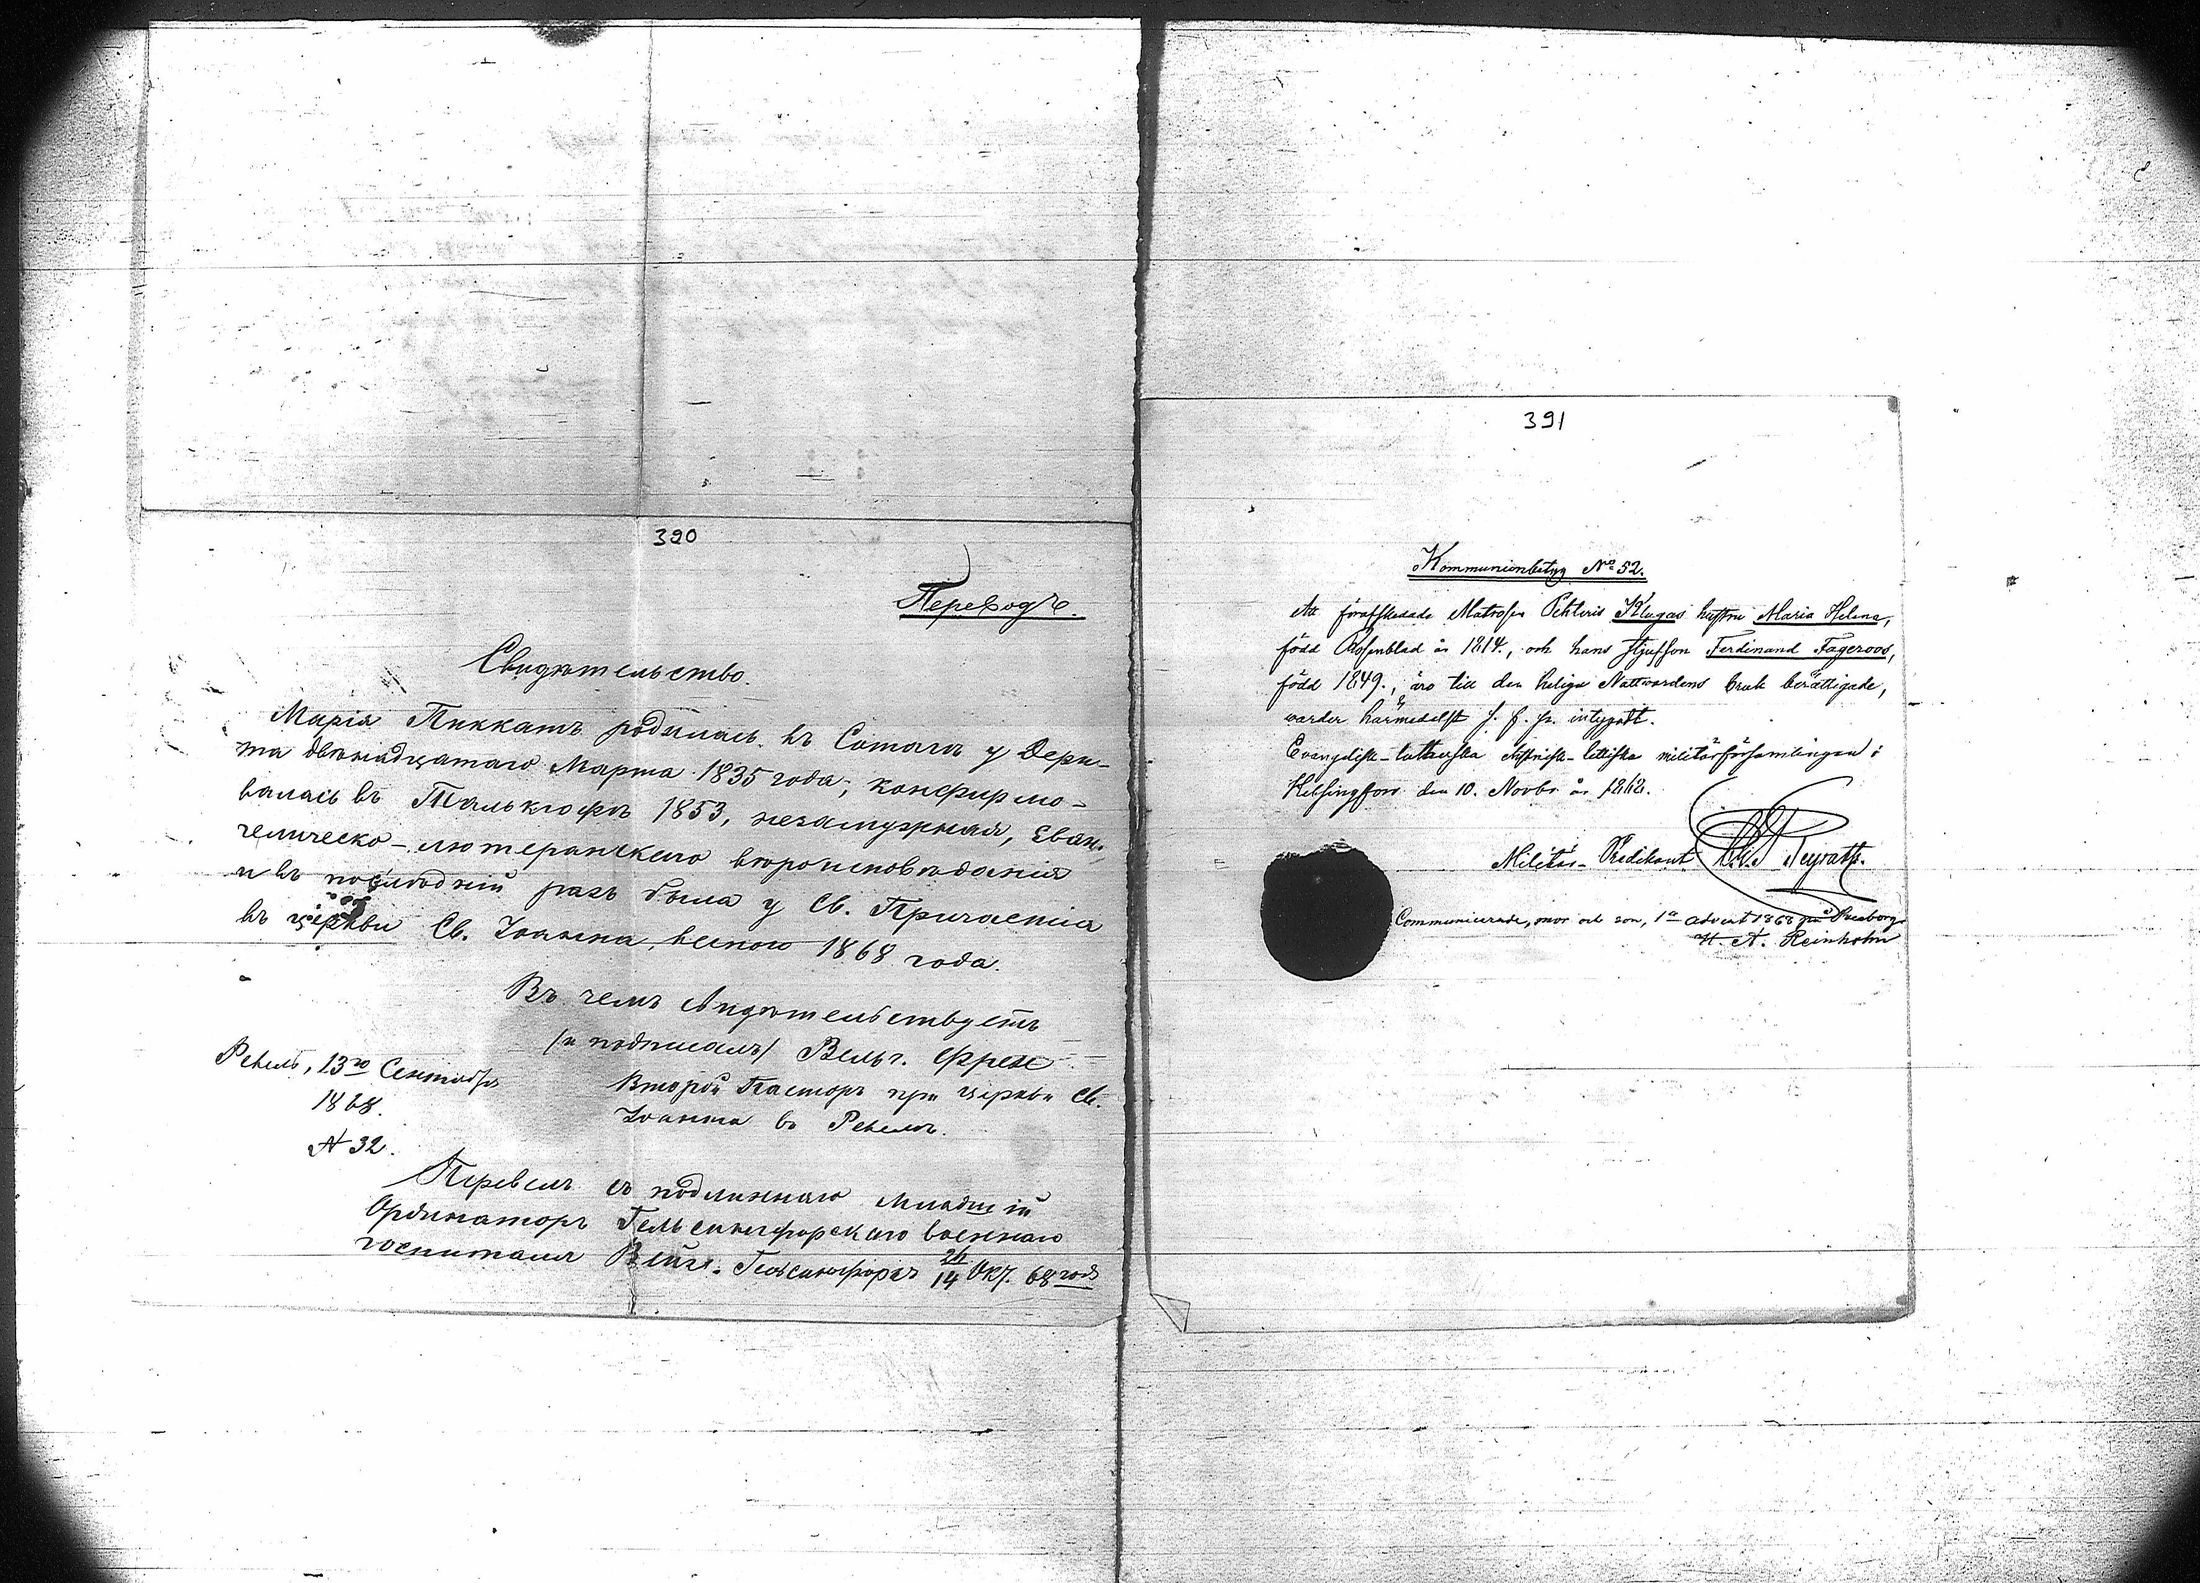 390
Переводъ.
Свидѣтельство.
Марія Пиккатъ родилась въ Сотага у Дерп-
та двѣнадцатаго Марта 1835 года; конфирмо-
валась въ Талькгофѣ 1853, незамужняя, Еван-
гелическо-лютеранскаго вѣроисповѣданія
и въ послѣдній разъ была у Св. Причастія
въ церкви Св. Іоанна, весною 1868 года.
Въ чемъ свидѣтельствуетъ
(и подписалъ) Вельг. Фрезе
Второй Пасторъ при церкви Св.
Іоанна въ Ревелѣ.
Ревель, 13го Сентября
1868.
№ 32.
Перевелъ съ подлиннаго младшій
Ординаторъ Гельсингфорскаго военнаго
госпиталя Гельсингфорсъ 26/14 Окт. 68 года
391
Kommunionbetyg No 52.
Att förafskedade Matrosen Pehteris Klugas hustru Maria Helena,
född Rosenblad år 1814., och hans stjufson Ferdinand Fageroos,
född 1849., äro till den heliga Nattvardens bruk berättigade,
warder härmedelst intygadt.
Evangelisk-lutherska estniska-lettiska militärförsamlingen i
Helsingfors den 10. Novbr år 1868.
Militär-Predikant
Communicerade, mor och son, 1a advent 1868 på Sveaborg.
H. A. Reinholm